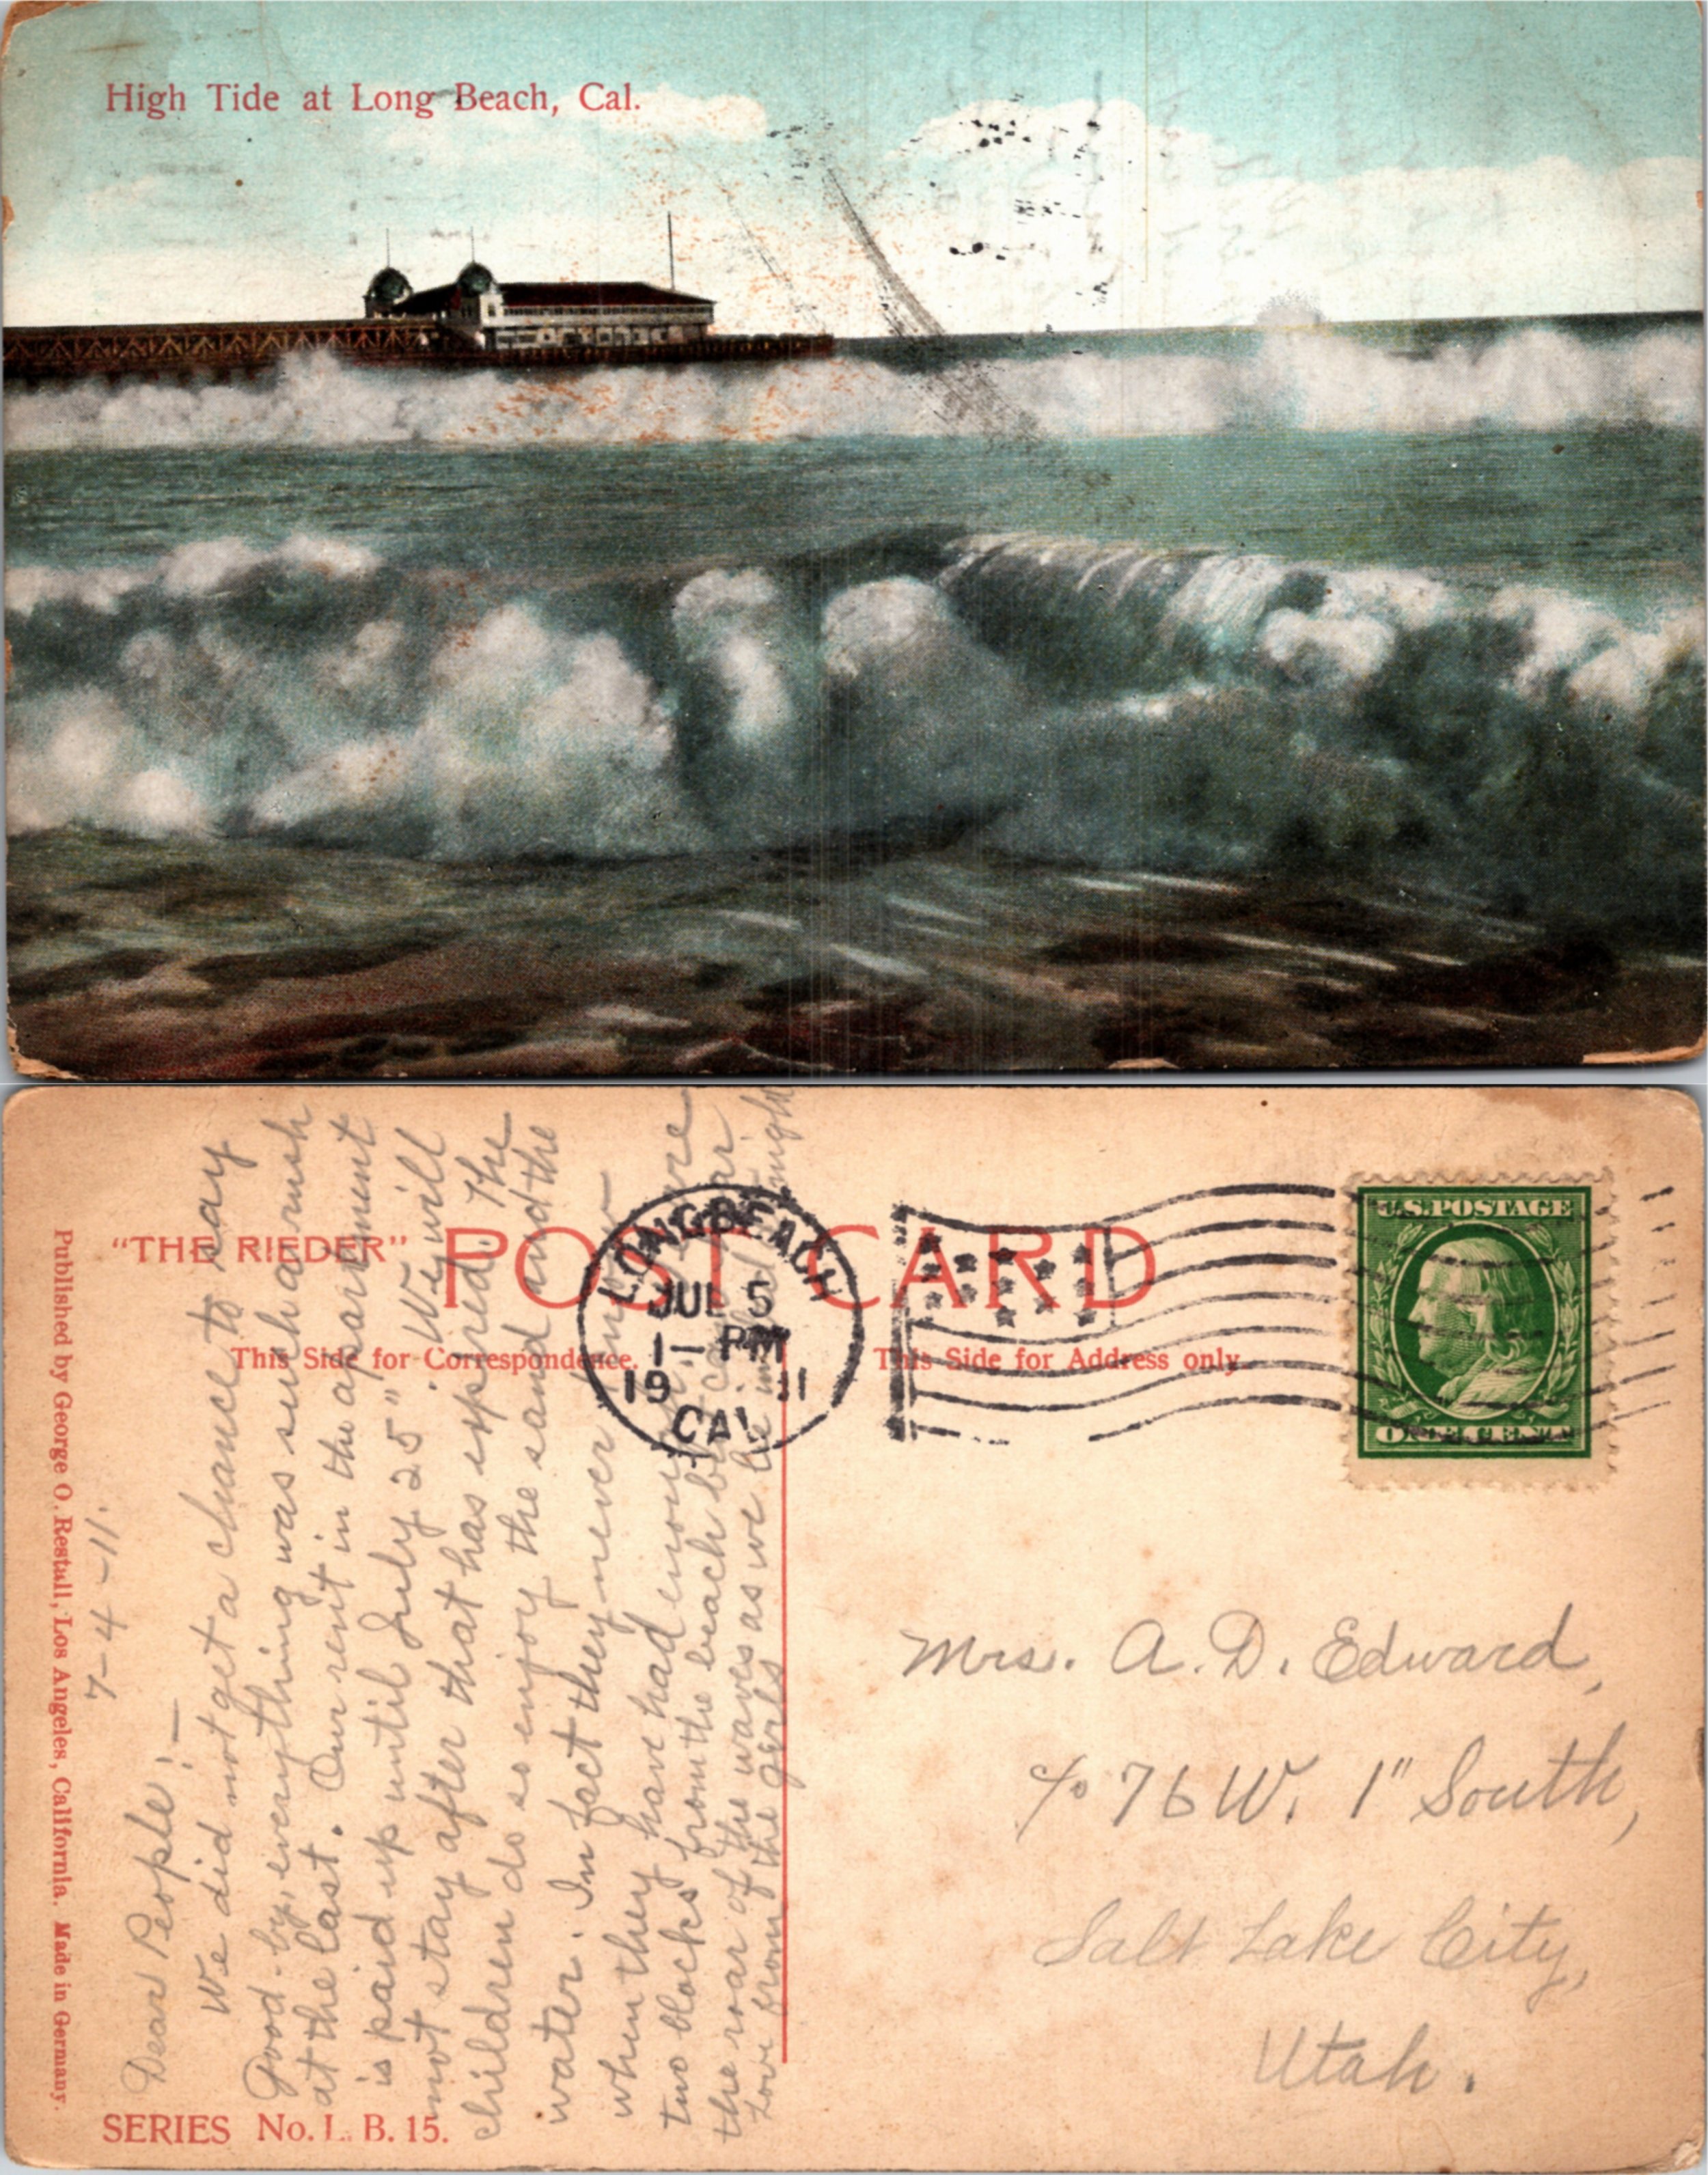 High Tide at Long Beach, Cal.
"THE RIEDER" POST CARD
This Side for Correspondence.
This Side for Address only
Published by George O. Restall, Los Angeles, California. Made in Germany.
SERIES No. L. B. 15.
LONG BEACH
JUL 5
1-PM
19 11
CAL.
U.S. POSTAGE
ONE CENT
7-4-11.
Dear People:—
We did not get a chance to say
Good-by, everything was such a rush
at the last. Our rent in the apartment
is paid up until July 25" We will
not stay after that has expired. The
children do so enjoy the sand and the
water. In fact they never know
when they have had enough. We are
two blocks from the beach but can hear
the roar of the waves as we lie in bed at night
Love from the girls
Mrs. A. D. Edward,
c/o 76 W. 1" South,
Salt Lake City,
Utah.